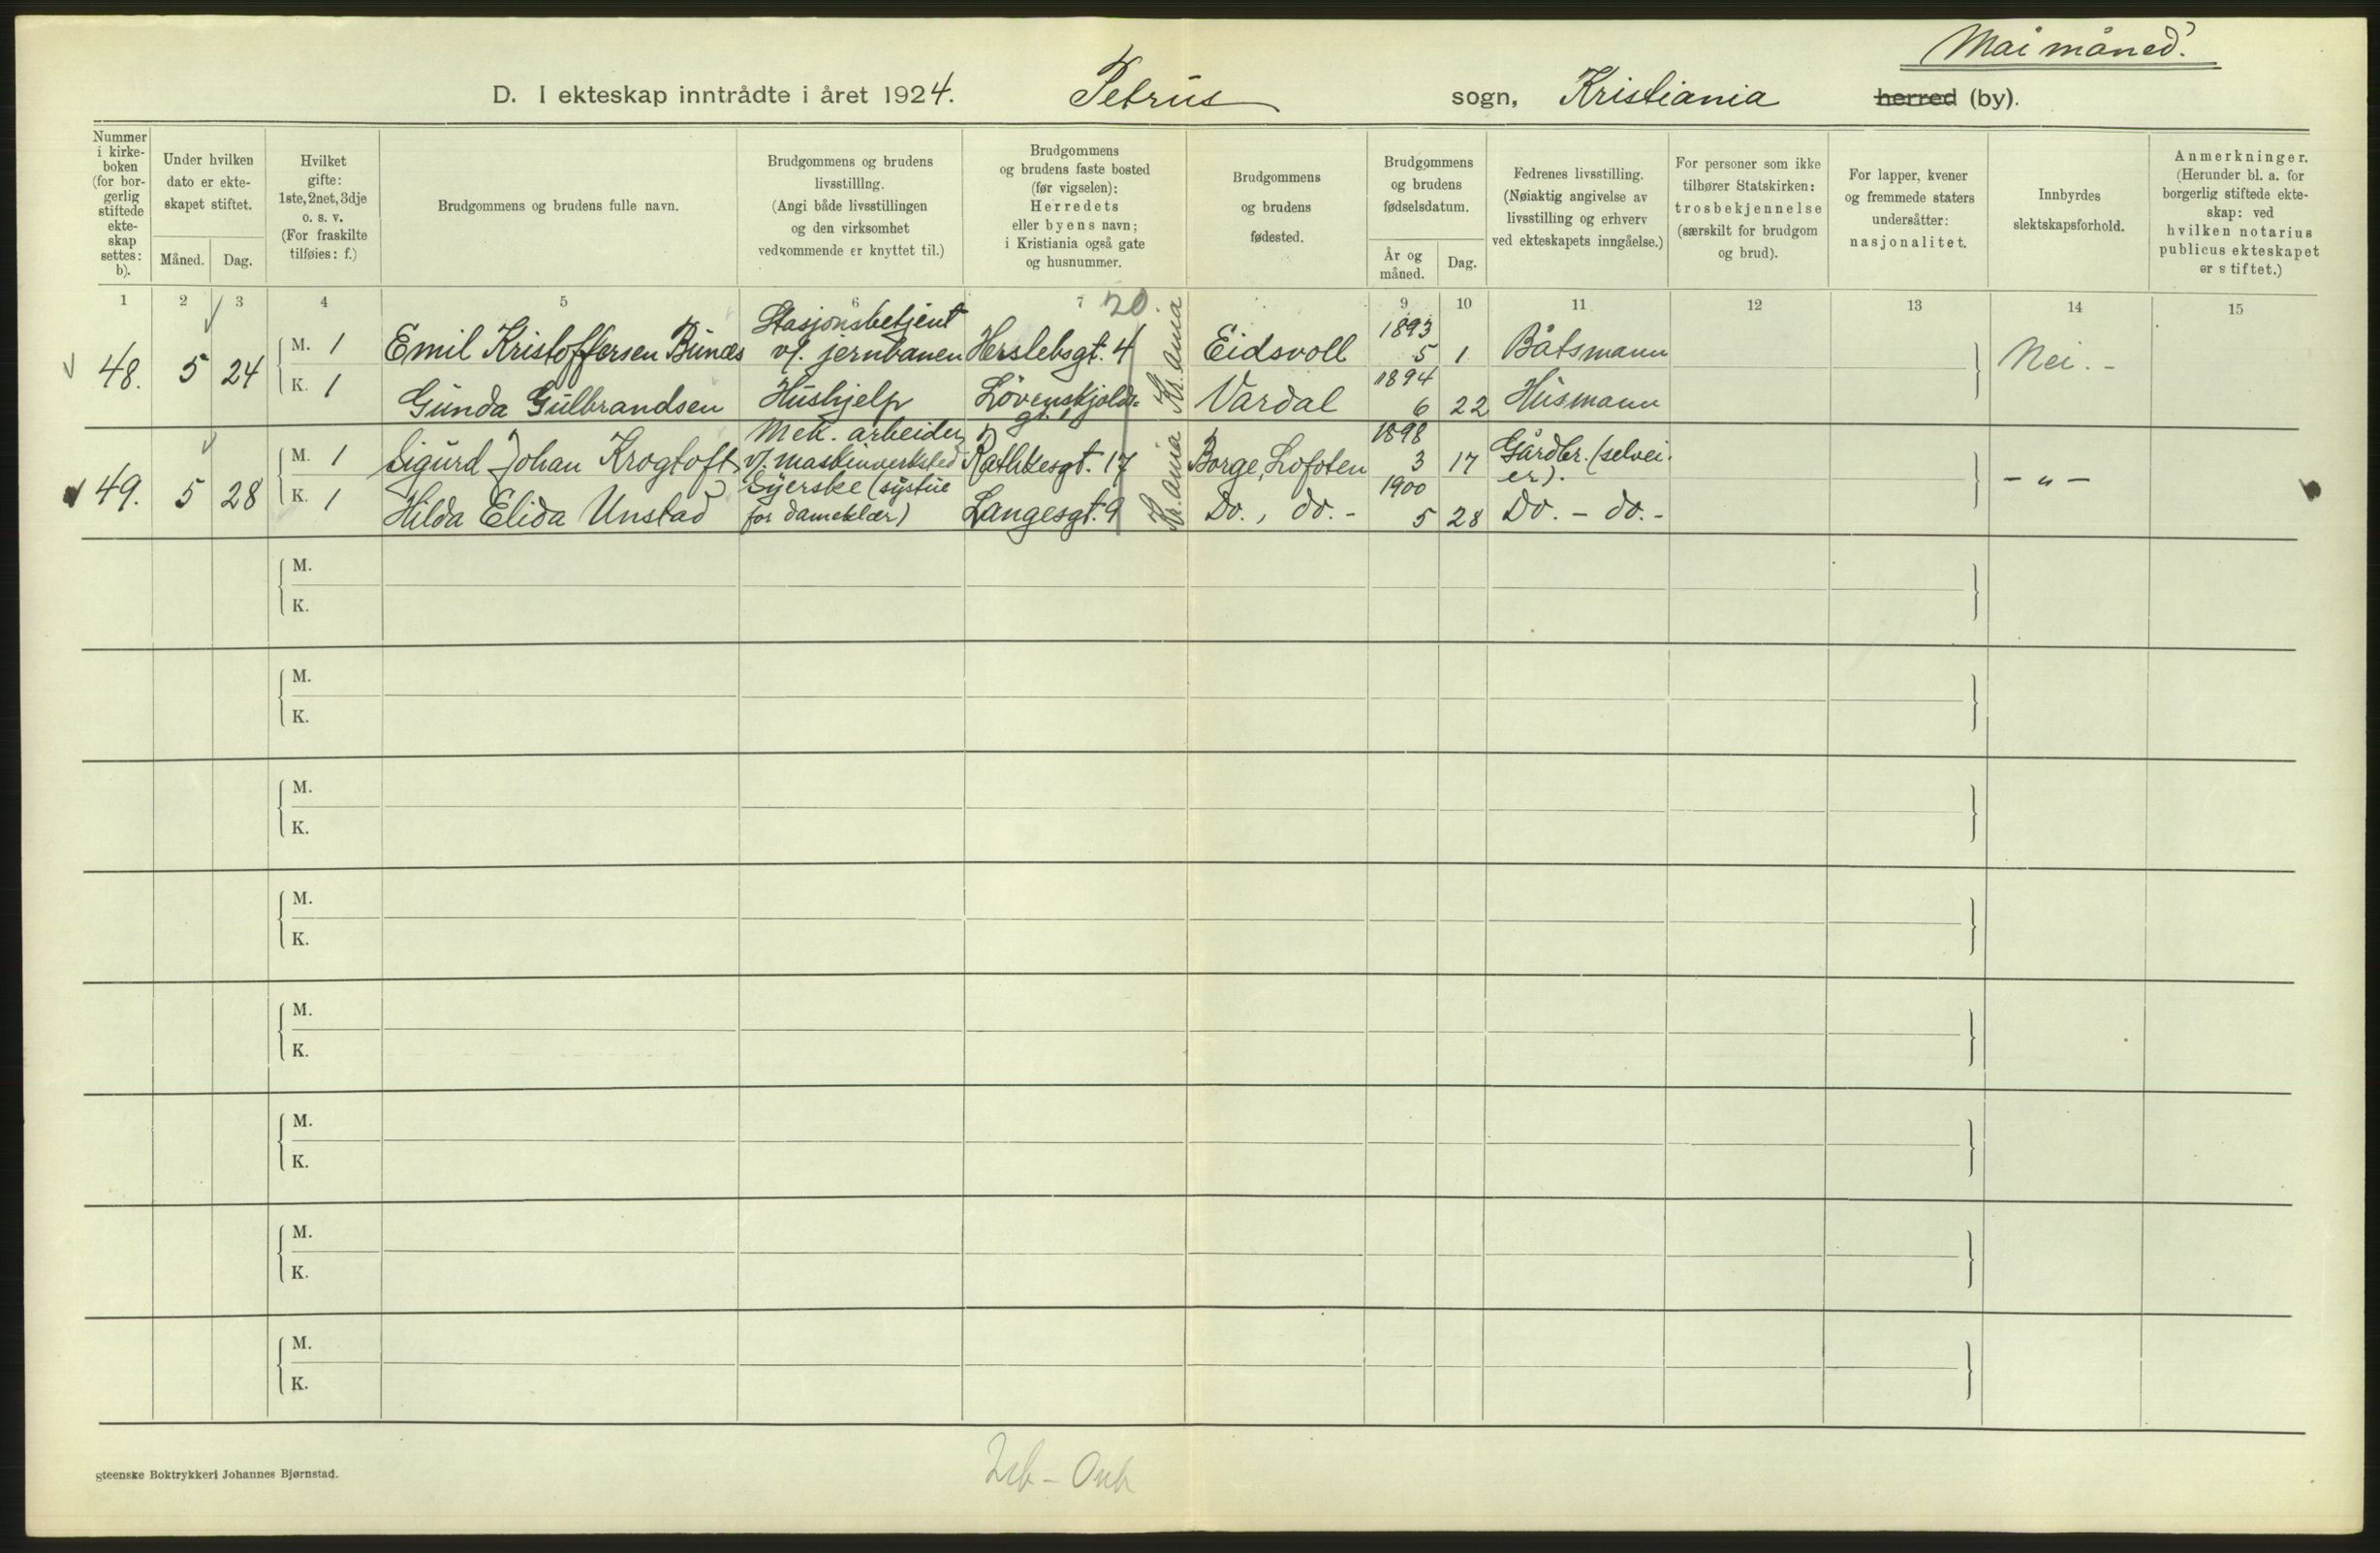 Mai måned.
D. I ekteskap inntrådte i året 1924. Petrus sogn, Kristiania herred (by).
Nummer
i kirke-
boken
(for bor-
gerlig
stiftede
ekte-
skap
settes:
b).
Under hvilken
dato er ekte-
skapet stiftet.
Måned. Dag.
Hvilket
gifte:
1ste, 2net, 3dje
o. s. v.
(For fraskilte
tilføies: f.)
Brudgommens og brudens fulle navn.
Brudgommens og brudens
livsstilling.
(Angi både livsstillingen
og den virksomhet
vedkommende er knyttet til.)
Brudgommens
og brudens faste bosted
(før vigselen):
Herredets
eller byens navn;
i Kristiania også gate
og husnummer.
Brudgommens
og brudens
fødested.
Brudgommens
og brudens
fødselsdatum.
År og
måned.
Dag.
Fedrenes livsstilling.
(Nøiaktig angivelse av
livsstilling og erhverv
ved ekteskapets inngåelse.)
For personer som ikke
tilhører Statskirken:
trosbekjennelse
(særskilt for brudgom
og brud).
For lapper, kvener
og fremmede staters
undersåtter:
nasjonalitet.
Innbyrdes
slektskapsforhold.
Anmerkninger.
(Herunder bl. a. for
borgerlig stiftede ekte-
skap: ved
hvilken notarius
publicus ekteskapet
er stiftet.)
1 2 3 4 5 6 7 20. 9 10 11 12 13 14 15
48. 5 24
M. 1 Emil Kristoffersen Bunæs Stasjonsbetjent
v/. jernbanen Herslebsgt. 4 Kr.ania Eidsvoll 1893
5 1 Båtsmann Nei. -
K. 1 Gunda Gulbrandsen Hushjelp Lövenskjolds-
gt. 1 Vardal 1894
6 22 Husmann
49. 5 28
M. 1 Sigurd Johan Krogtoft Mek. arbeider
v/. maskinverksted Rathkesgt. 17 Kr.ania Borge, Lofoten 1898
3 17 Gårdbr. (selvei-
er). - " -
K. 1 Hilda Elida Unstad Syerske (systue
for dameklær) Langesgt. 9 Do., do. - 1900
5 28 Do. - do. -
M.
K.
M.
K.
M.
K.
M.
K.
M.
K.
M.
K.
M.
K.
M.
K.
gteenske Boktrykkeri Johannes Bjørnstad.